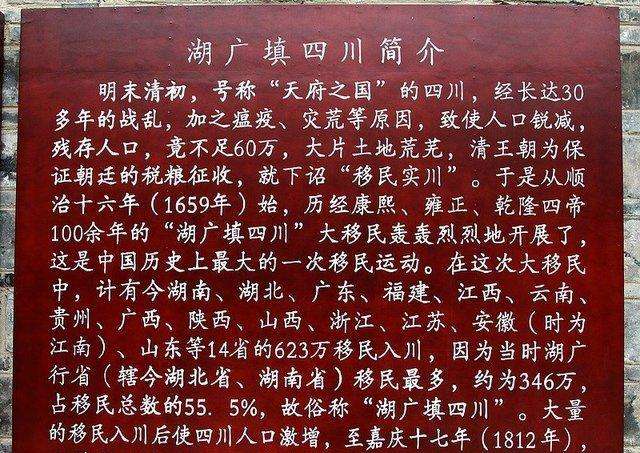 湖广填四川简介
明末清初，号称“天府之国”的四川，经长达30
多年的战乱，加之瘟疫、灾荒等原因，致使人口锐减，
残存人口，竟不足60万，大片土地荒芜，清王朝为保
证朝廷的税粮征收，就下诏“移民实川”。于是从顺
治十六年（1659年）始，历经康熙、雍正、乾隆四帝
100余年的“湖广填四川”大移民轰轰烈烈地开展了，
这是中国历史上最大的一次移民运动。在这次大移民
中，计有今湖南、湖北、广东、福建、江西、云南、
贵州、广西、陕西、山西、浙江、江苏、安徽（时为
江南）、山东等14省的623万移民入川，因为当时湖广
行省（辖今湖北省、湖南省）移民最多，约为346万，
占移民总数的55. 5%，故俗称“湖广填四川”。大量
的移民入川后使四川人口激增，至嘉庆十七年（1812年），